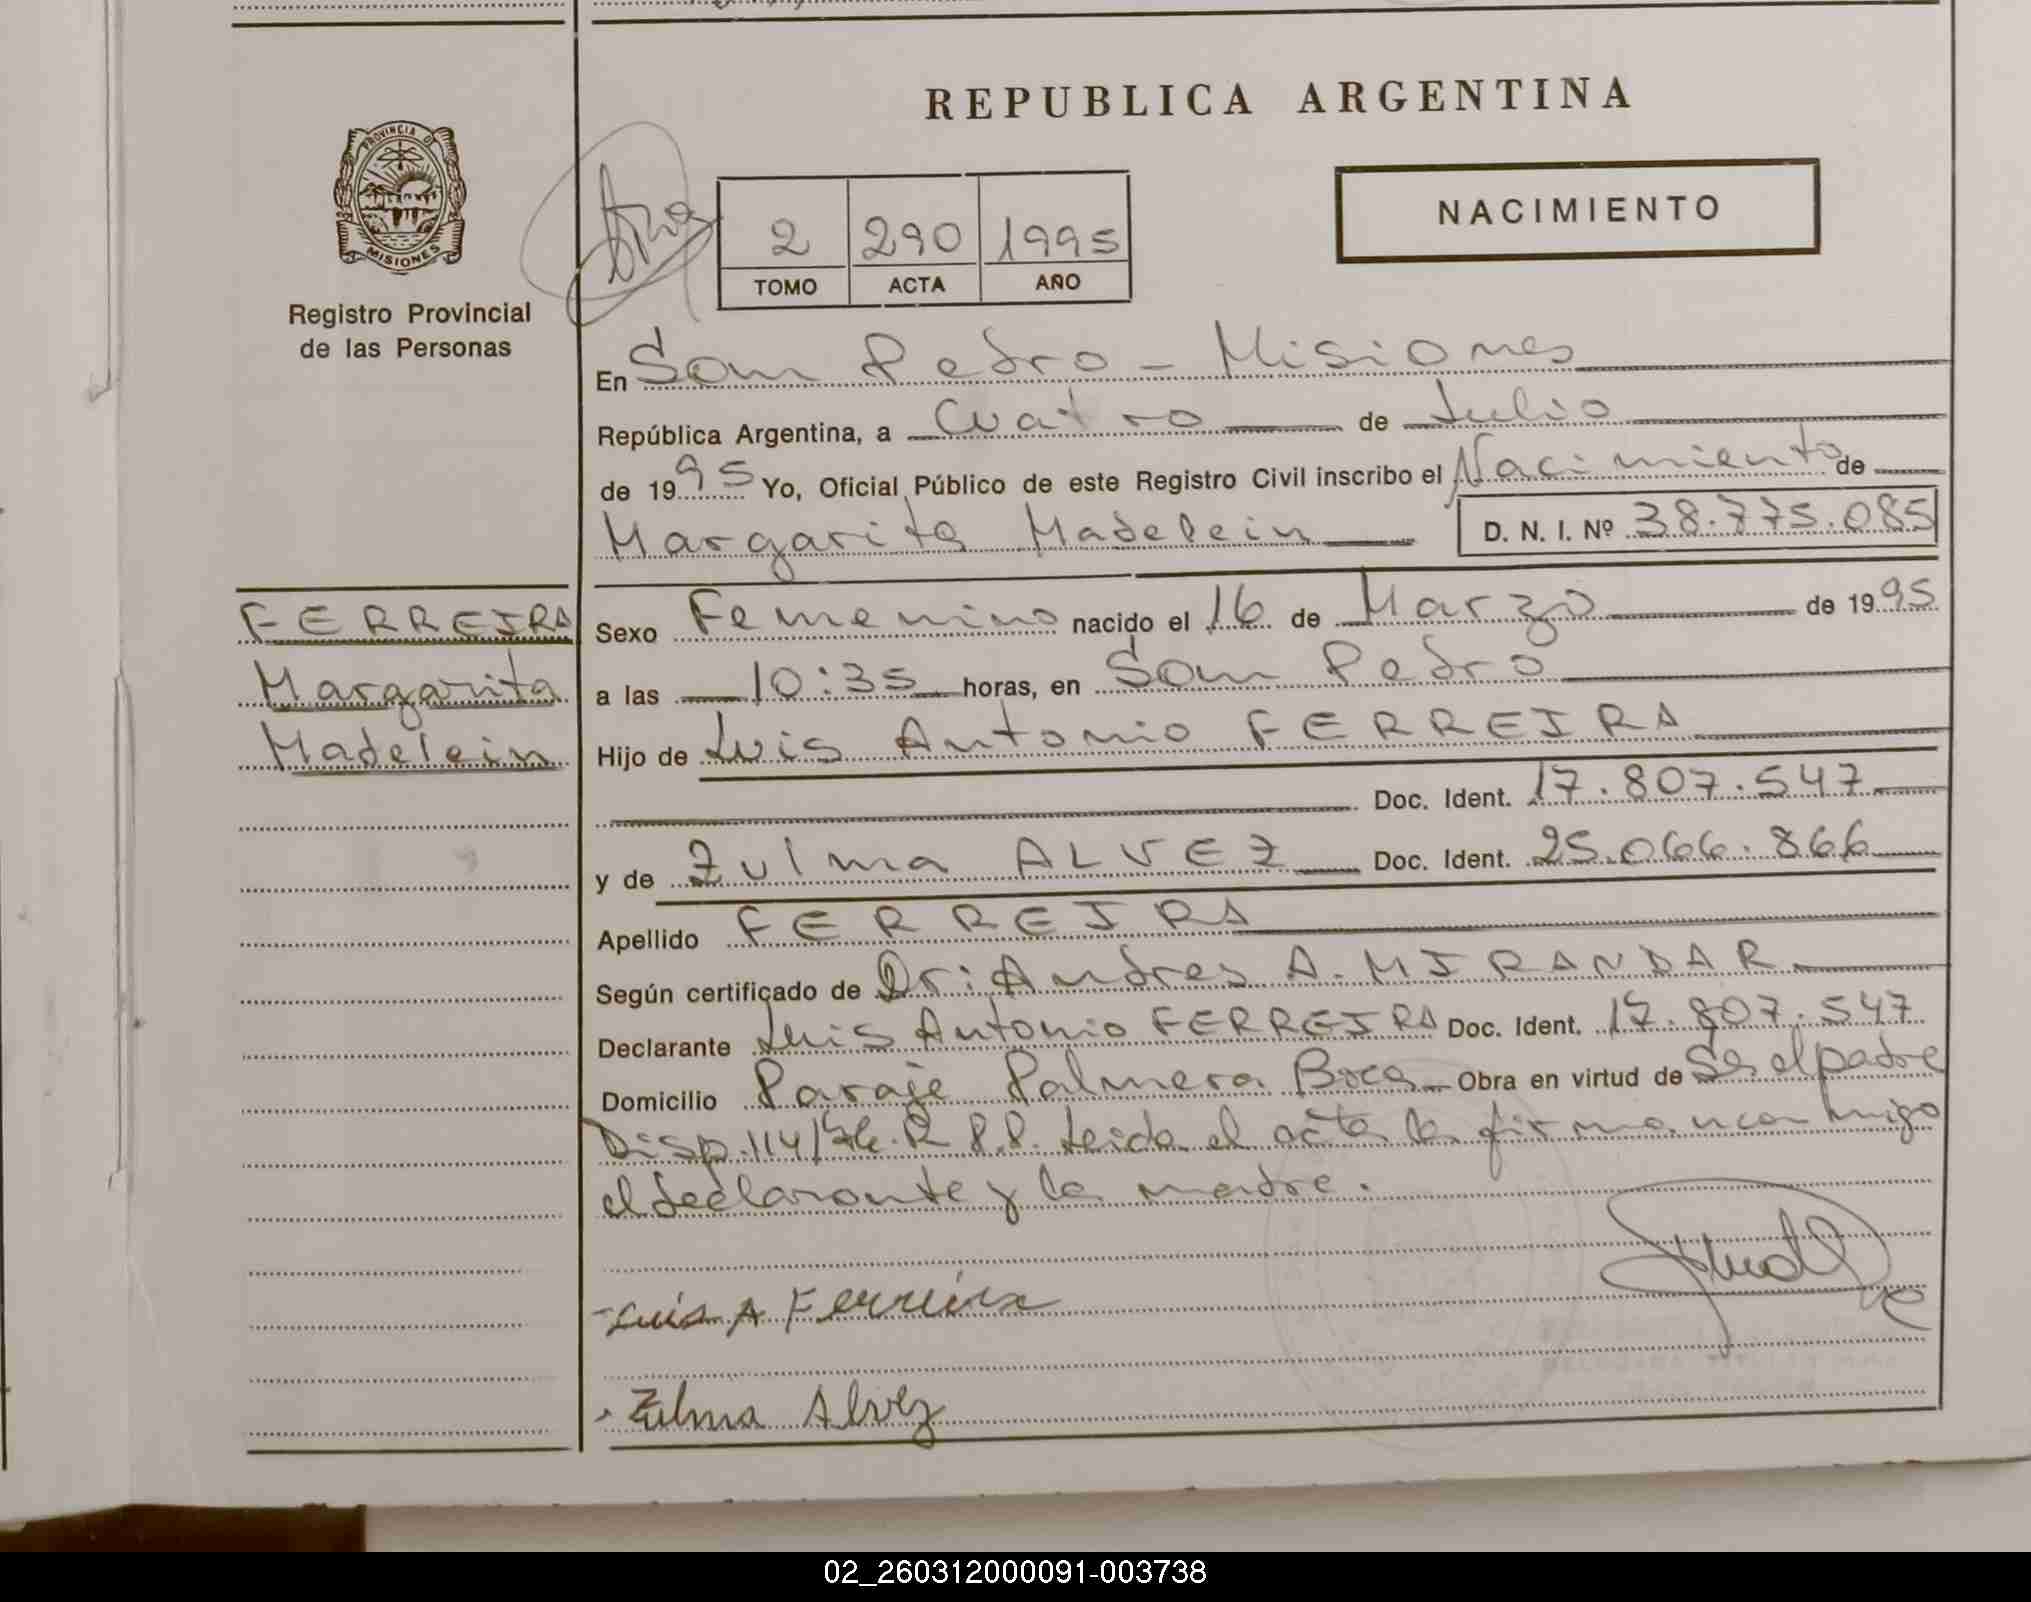 REPUBLICA ARGENTINA
PROVINCIA DE
MISIONES
Registro Provincial
de las Personas
NACIMIENTO
2 290 1995
TOMO ACTA AÑO
En San Pedro - Misiones
República Argentina, a Cuatro de Julio
de 1995 Yo, Oficial Público de este Registro Civil inscribo el Nacimiento de
Margarita Madelein D. N. I. Nº 38.775.085
FERREIRA
Margarita
Madelein
Sexo Femenino nacido el 16 de Marzo de 1995
a las 10:35 horas, en San Pedro
Hijo de Luis Antonio FERREIRA
Doc. Ident. 17.807.547
y de Zulma ALVEZ Doc. Ident. 25.066.866
Apellido FERREIRA
Según certificado de Dr: Andres A. MIRANDAR
Declarante Luis Antonio FERREIRA Doc. Ident. 17.807.547
Domicilio Paraje Palmera Boca Obra en virtud de Ser el padre
Disp. 114/ R.P.P. Leida el acta la firman conmigo
el declarante y la madre.
Luis A Ferreira
Zulma Alvez
02_260312000091-003738